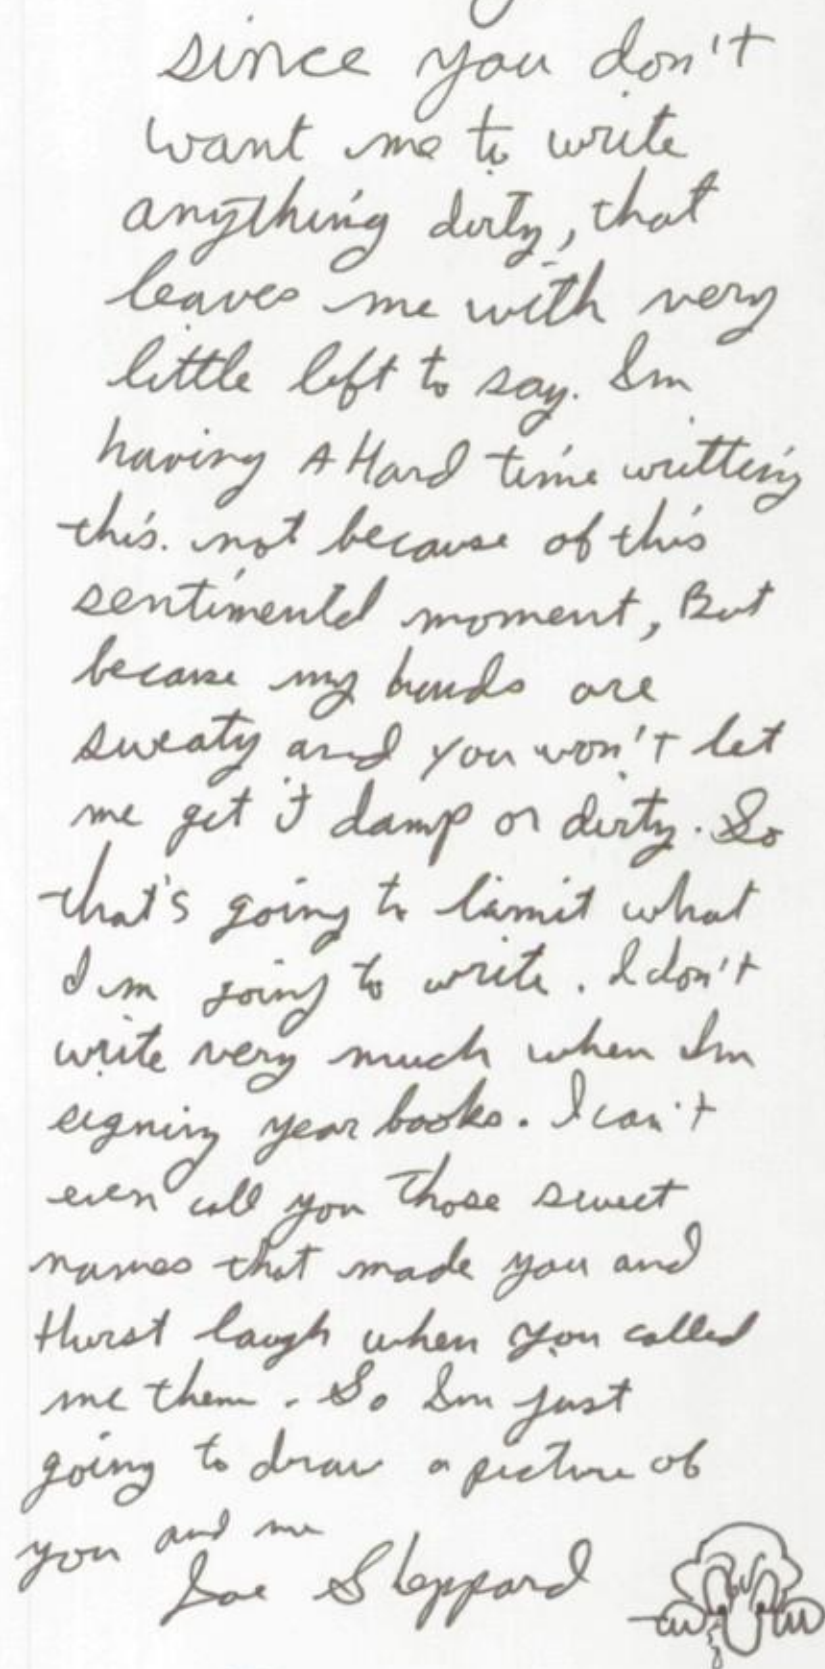 since you don't
want me to write
anything dirty, that
leaves me with very
little left to say. Im
having A Hard time writting
this. not because of this
sentimental moment, But
because my hands are
sweaty and you won't let
me get it damp or dirty. So
that's going to limit what
I'm going to write. I don't
write very much when Im
signing year books. I can't
even call you those sweet
names that made you and
Hurst laugh when you called
me them. So Im just
going to draw a picture of
you and me
Joe Sheppard